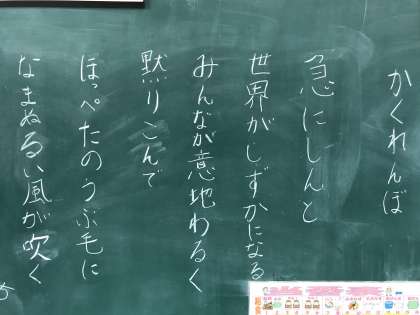 かくれんぼ
急にしんと
世界がしずかになる
みんなが意地わるく
黙りこんで
ほっぺたのうぶ毛に
なまぬるい風が吹く